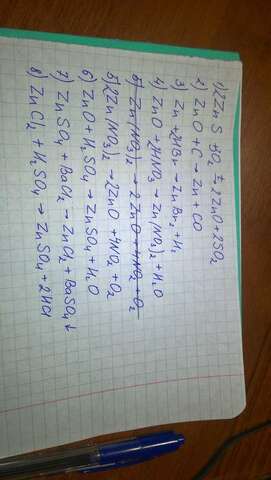 1) 2ZnS + 3O₂ = 2ZnO + 2SO₂
2) ZnO + C → Zn + CO
3) Zn + 2HBr → ZnBr₂ + H₂
4) ZnO + 2HNO₃ → Zn(NO₃)₂ + H₂O
5) Zn(NO₃)₂ → 2ZnO + 4NO₂ + O₂
5) 2Zn(NO₃)₂ → 2ZnO + 4NO₂ + O₂
6) ZnO + H₂SO₄ → ZnSO₄ + H₂O
7) ZnSO₄ + BaCl₂ → ZnCl₂ + BaSO₄ ↓
8) ZnCl₂ + H₂SO₄ → ZnSO₄ + 2HCl